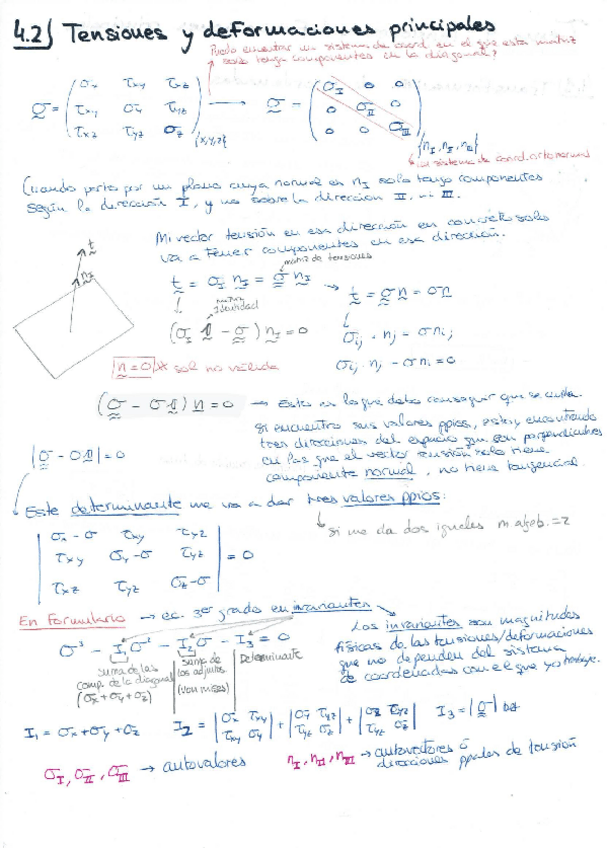 4.2) Tensiones y deformaciones principales
Puedo encontrar un sistema de coord. en el que esta matriz
solo tenga componentes en la diagonal?
σ = ( σx τxy τxz ) → σ = ( σI 0 0 )
( τxy σy τyz ) ( 0 σII 0 )
( τxz τyz σz ) {x,y,z} ( 0 0 σIII ) {nI, nII, nIII}
un sistema de coord. ortonormal
Cuando corto por un plano cuya normal es nI solo tengo componentes
según la dirección I, y no sobre la dirección II ni III.
Mi vector tensión en esa dirección en concreto solo
va a tener componentes en esa dirección.
matriz de tensiones
t
nI
t = σI nI = σ nI → t = σ n = σ n
matriz identidad
(σI 1 - σ) nI = 0
σij · nj = σ ni
σij · nj - σ ni = 0
n = 0 sol no válida
(σ - σ1) n = 0 → Esto es lo que debo conseguir que se cumpla.
Si encuentro sus valores ppios, estoy encontrando
tres direcciones del espacio que son perpendiculares
en las que el vector tensión solo tiene
componente normal, no tiene tangencial.
|σ - σ1| = 0
Este determinante me va a dar tres valores ppios:
si me da dos iguales =2
| σx - σ τxy τxz |
| τxy σy - σ τyz | = 0
| τxz τyz σz - σ |
En formulario → ec. 3er grado en invariantes
σ³ - I1 σ² - I2 σ - I3 = 0
suma de las comp. de la diagonal (σx + σy + σz)
suma de los adjuntos (von mises)
Determinante
Los invariantes son magnitudes
físicas de las tensiones/deformaciones
que no dependen del sistema
de coordenadas con el que yo trabaje.
I1 = σx + σy + σz I2 = | σx τxy ; τxy σy | + | σy τyz ; τyz σz | + | τyz | I3 = |σ|
σI, σII, σIII → autovalores
nI, nII, nIII → autovectores ó
direcciones ppales de tensión